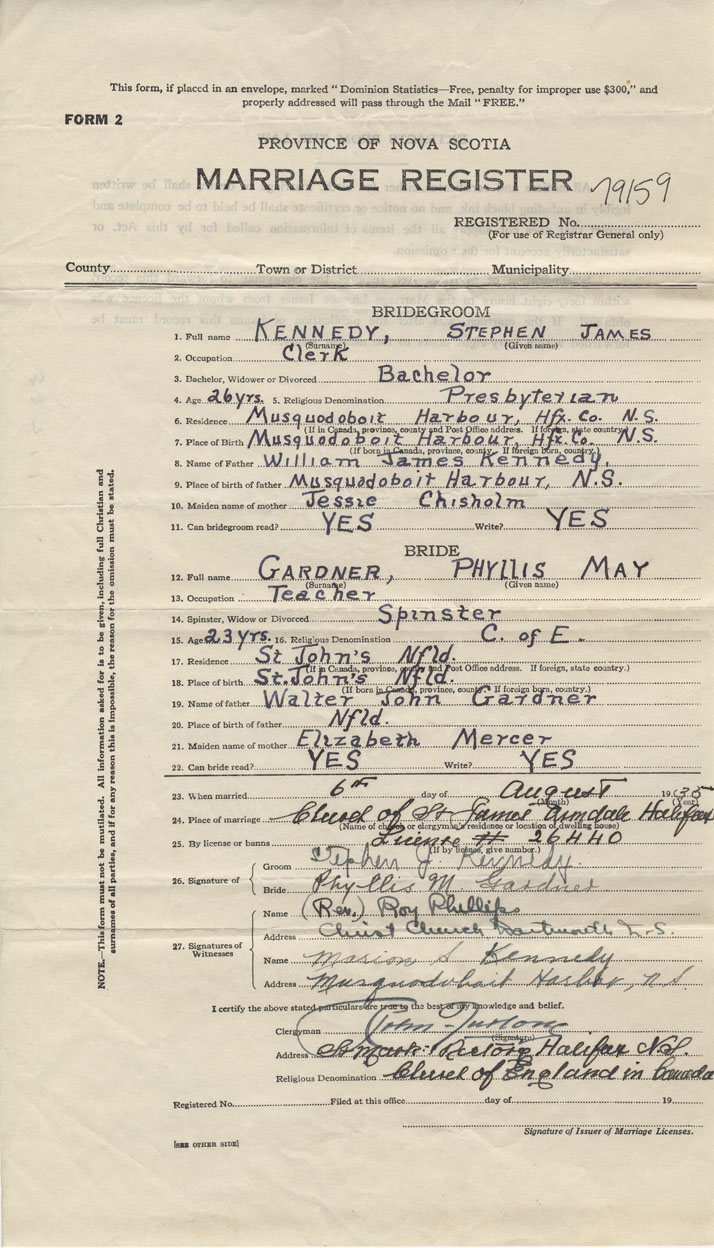 This form, if placed in an envelope, marked "Dominion Statistics—Free, penalty for improper use $300," and
properly addressed will pass through the Mail "FREE."
FORM 2
PROVINCE OF NOVA SCOTIA
MARRIAGE REGISTER 79159
REGISTERED No.
(For use of Registrar General only)
County Town or District Municipality
BRIDEGROOM
1. Full name KENNEDY, STEPHEN JAMES
(Surname) (Given name)
2. Occupation Clerk
3. Bachelor, Widower or Divorced Bachelor
4. Age 26 yrs. 5. Religious Denomination Presbyterian
6. Residence Musquodoboit Harbour, Hfx. Co. N.S.
(If in Canada, province, county and Post Office address. If foreign, state country.)
7. Place of Birth Musquodoboit Harbour, Hfx. Co. N.S.
(If born in Canada, province, county. If foreign born, country.)
8. Name of Father William James Kennedy.
9. Place of birth of father Musquodoboit Harbour, N.S.
10. Maiden name of mother Jessie Chisholm
11. Can bridegroom read? YES Write? YES
BRIDE
12. Full name GARDNER, PHYLLIS MAY
(Surname) (Given name)
13. Occupation Teacher
14. Spinster, Widow or Divorced Spinster
15. Age 23 yrs. 16. Religious Denomination C. of E.
17. Residence St John's Nfld.
(If in Canada, province, county and Post Office address. If foreign, state country.)
18. Place of birth St. John's Nfld.
(If born in Canada, province, county. If foreign born, country.)
19. Name of father Walter John Gardner
20. Place of birth of father Nfld.
21. Maiden name of mother Elizabeth Mercer
22. Can bride read? YES Write? YES
23. When married 6th day of August 1935
(Month) (Year)
24. Place of marriage Church of St James Armdale Halifax
(Name of church or clergyman's residence or location of dwelling house)
25. By license or banns License # 26440
(If by licence, give number.)
26. Signature of
Groom Stephen J. Kennedy.
Bride Phyllis M. Gardner
27. Signatures of Witnesses
Name (Rev.) Roy Phillips
Address Christ Church Dartmouth N.S.
Name Marion S Kennedy
Address Musquodoboit Harbor, N S
I certify the above stated particulars are true to the best of my knowledge and belief.
Clergyman John
(Signature)
Address St Mark's Rectory Halifax N.S.
Religious Denomination Church of England in Canada
Registered No. Filed at this office day of 19
Signature of Issuer of Marriage Licenses.
[SEE OTHER SIDE]
NOTE.—This form must not be mutilated. All information asked for is to be given, including full Christian and
surnames of all parties, and if for any reason this is impossible, the reason for the omission must be stated.